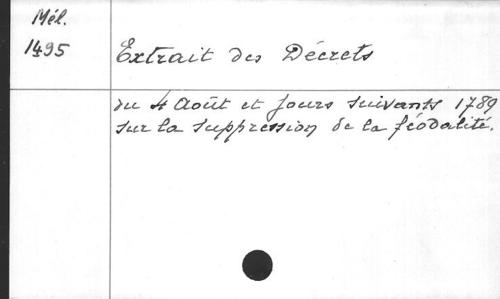 Mél.
1495
Extrait des Décrets
du 4 Août et jours suivants 1789
sur la suppression de la féodalité.